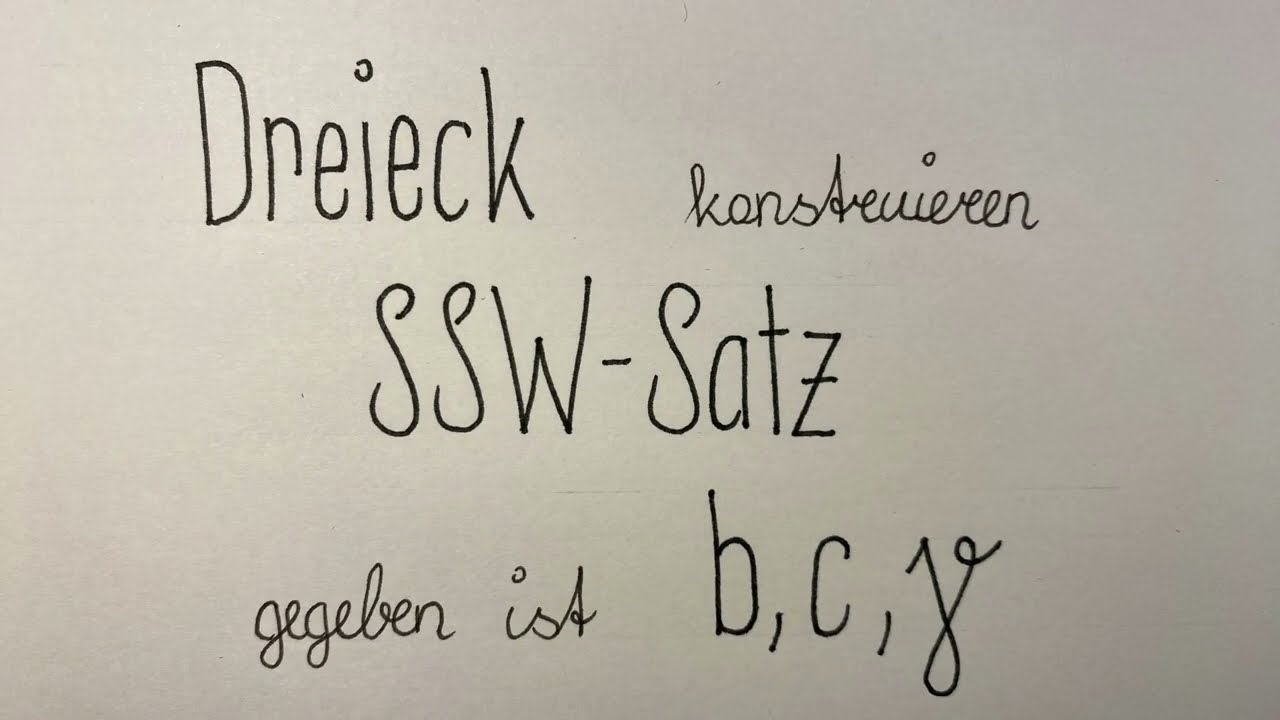 Dreieck konstruieren
SSW-Satz
gegeben ist b, c, γ